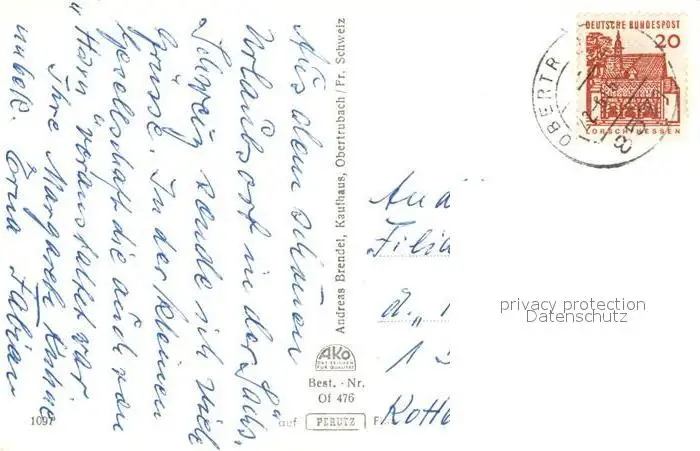 Aus dem schönen
Urlaubsort in der Sächs.
Schweiz sende ich viele
Grüsse. In der kleinen
Gesellschaft die auch von
"Hann" veranstaltet war
Ihre Margarete
unbek. Erna Fabian
Andreas Brendel, Kaufhaus, Obertrubach/Fr. Schweiz
AKO
DAS ZEICHEN
FÜR QUALITÄT
Best. - Nr.
Of 476
auf PERUTZ F
1097
DEUTSCHE BUNDESPOST
20
LORSCH/HESSEN
OBERTR
An di
Filia
d. "
12
Kotte
privacy protection
Datenschutz